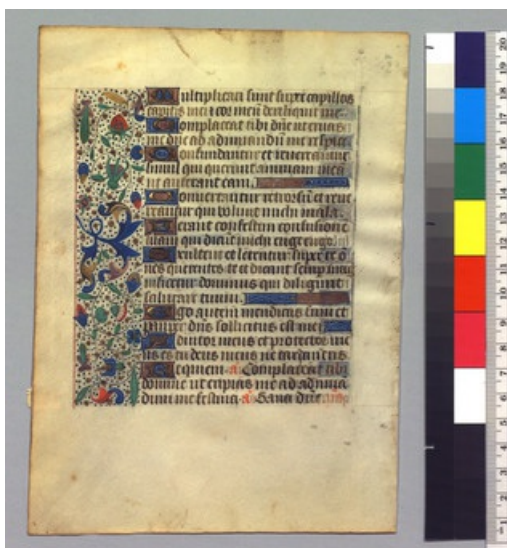 Multiplicati sunt super capillos
capitis mei ⁊ cor meū dereliquit me
Complaceat tibi dñe ut eruas
me dñe ad adiuvandū me respice
Confundantur et revereantur
simul qui querunt animam meā
ut auferant eam.
Convertantur retrorsū et reve
reantur qui volunt michi mala.
Ferant confestim confusionē
suam qui dicūt michi euge euge
Exultent et letentur super te ō
nes querentes te et dicant semp mag
nificetur dominus qui diligunt
salutare tuum.
Ego autem mendicus sum et
pauper dñs sollicitus est mei
Adiutor meus et protector me
us es tu deus meus ne tardaveris
Requiem. a. Complaceat tibi
domine ut eripias me ad adiuva
dum me festina. a. Sana dñe.